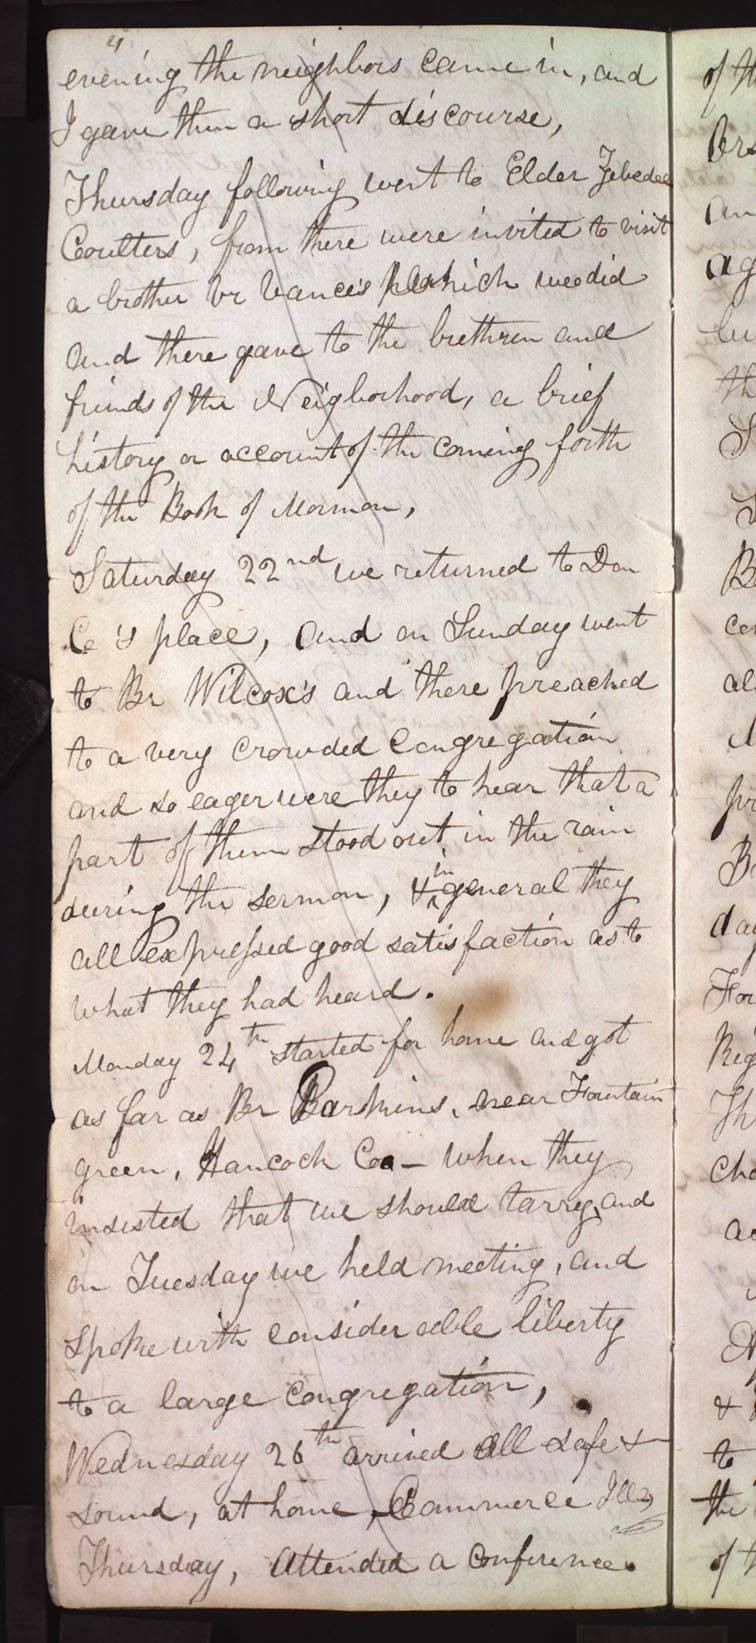 4
evening the neighbors came in, and
I gave them a short discourse,
Thursday following went to Elder Zebedee
Coulters, from there were invited to visit
a brother Br Vance's which we did
and there gave to the brethren and
friends of the Neigborhood, a brief
history or account of the coming forth
of the Book of Mormon,
Saturday 22nd we returned to Don
C's place, and on Sunday went
to Br Wilcox's and there preached
to a very crowded congregation
and so eager were they to hear that a
part of them stood out in the rain
during the sermon, & in general they
all expressed good satisfaction as to
what they had heard.
Monday 24th started for home and got
as far as Br Parkins, near Fountain
green, Hancock Co - when they
insisted that we should tarry, and
on Tuesday we held meeting, and
spoke with considerable liberty
to a large congregation,
Wednesday 26th arrived all safe &
sound, at home, Commerce Ills
Thursday, Attended a conference.